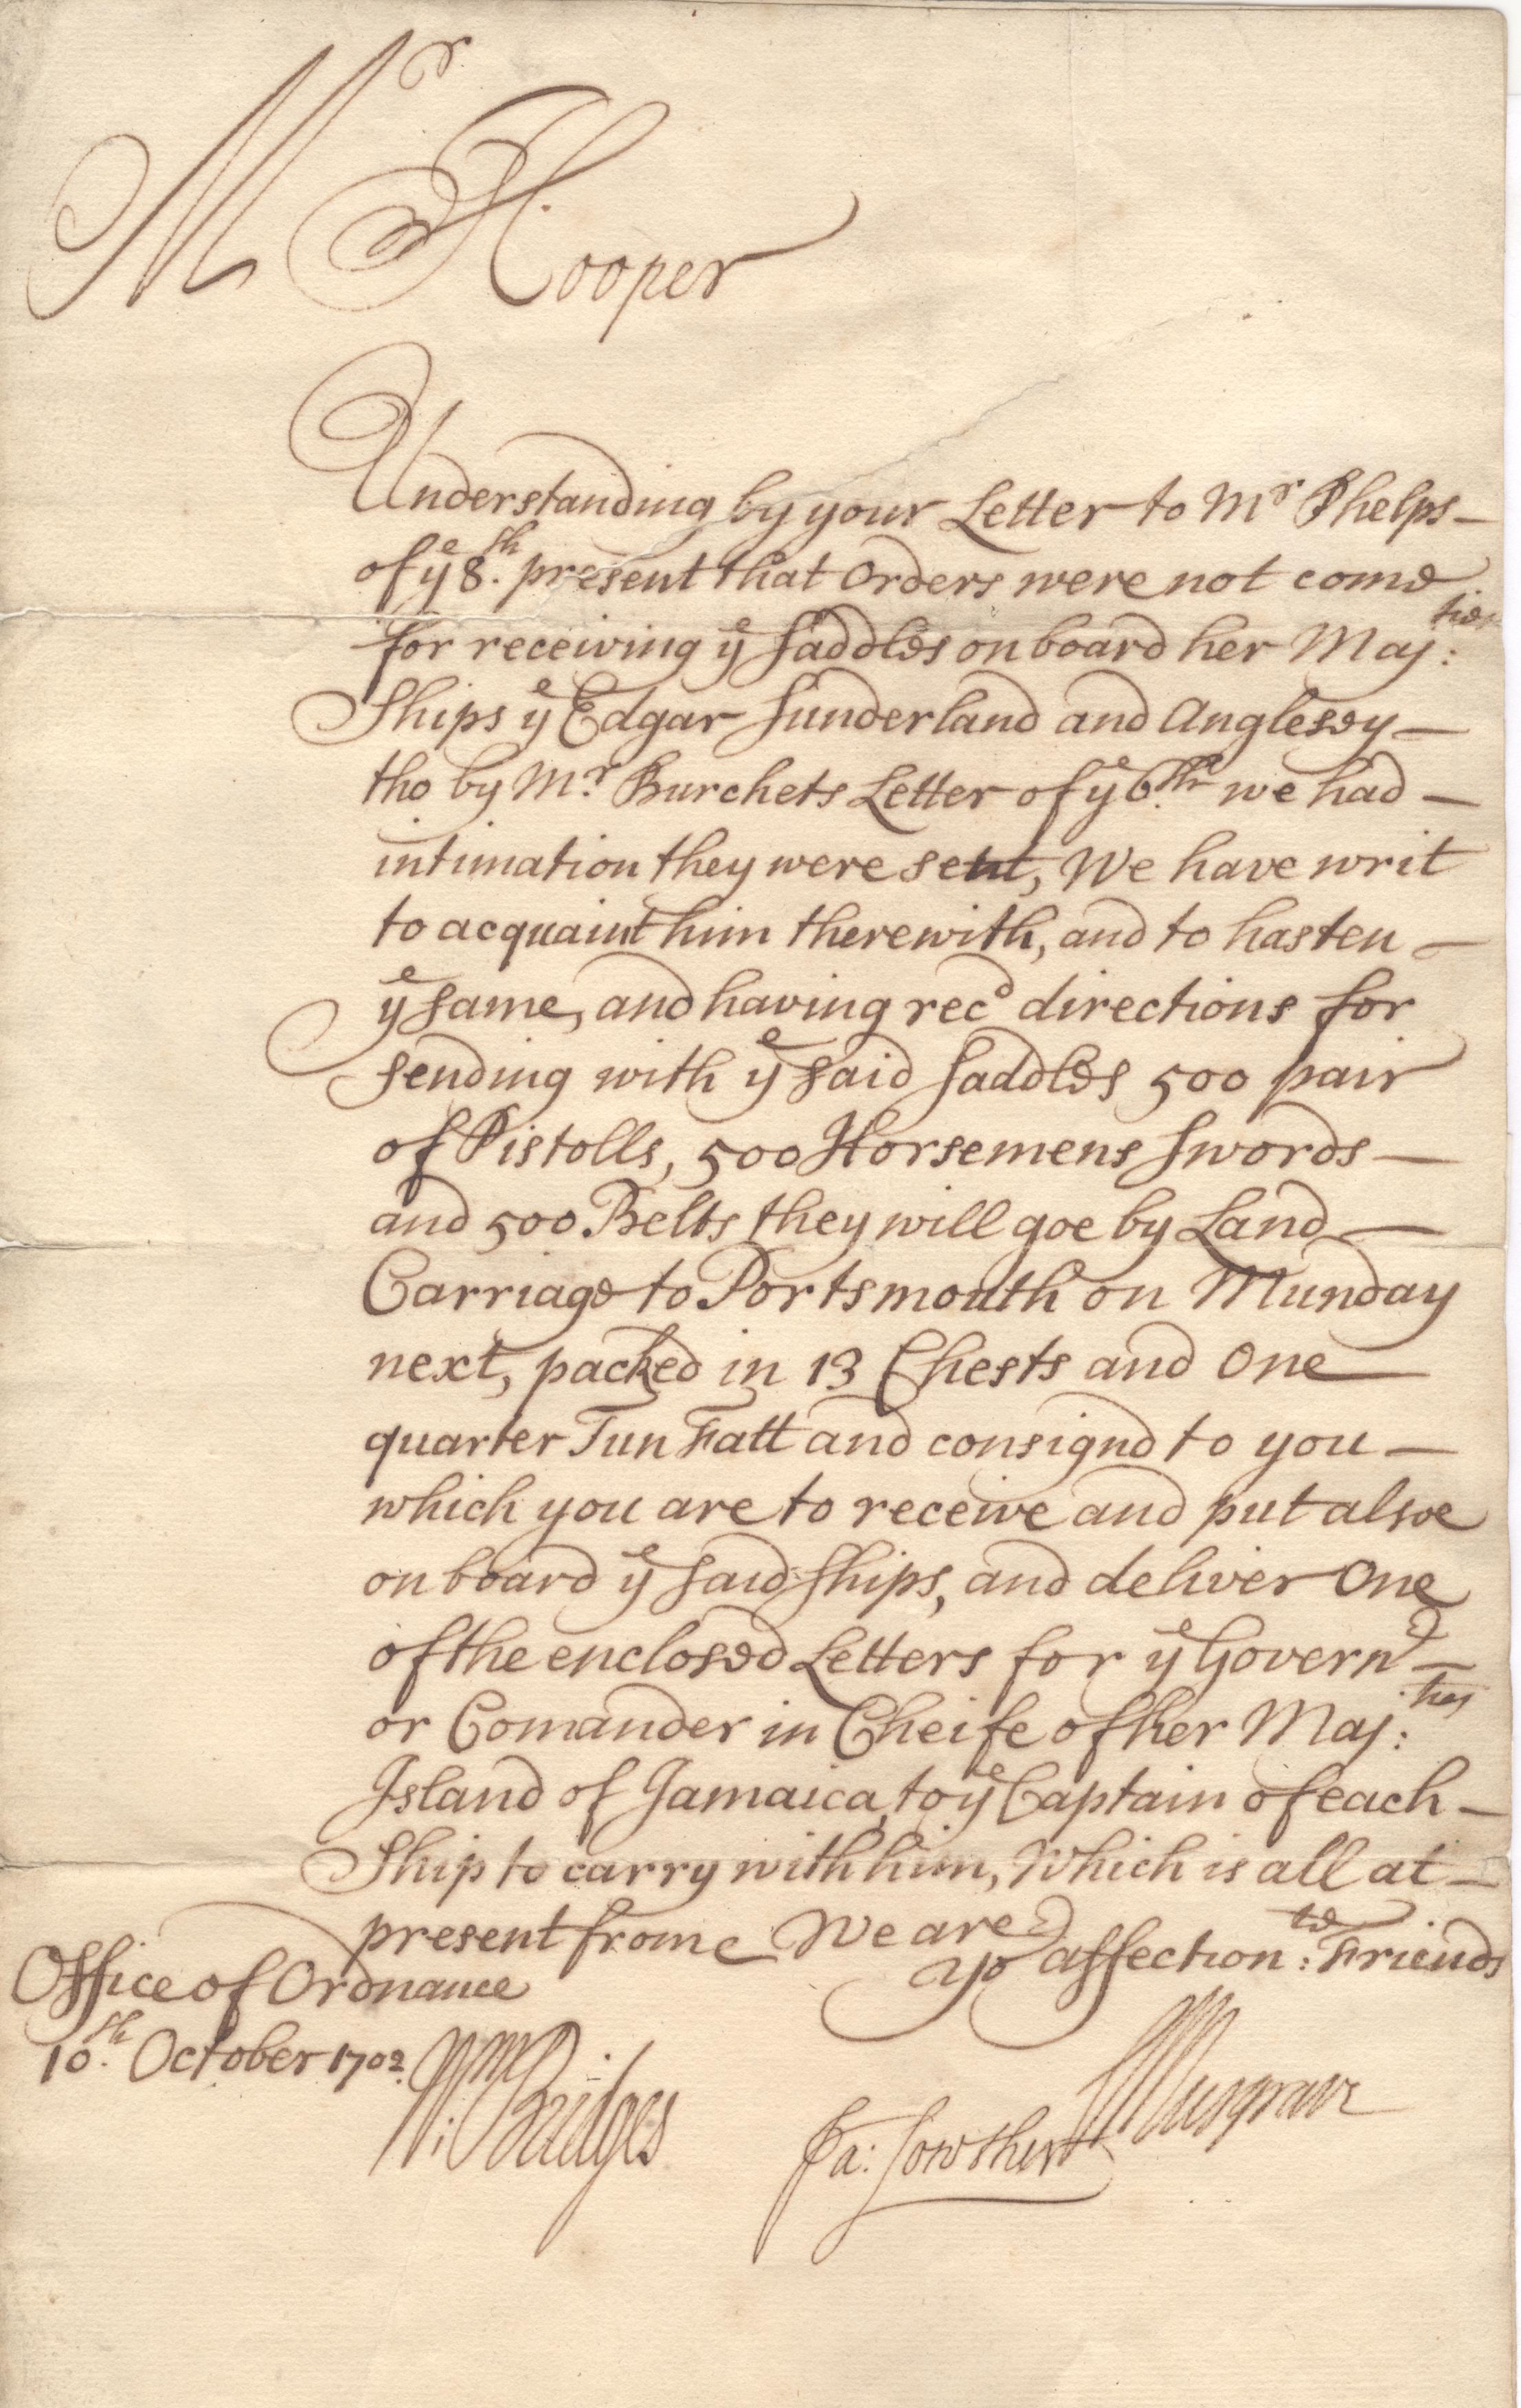 Mr Hooper
Understanding by your Letter to Mr Phelps
of ye 8th. present that Orders were not come
for receiving ye saddles on board her Maj:ties
Ships ye Edgar Sunderland and Anglesey
tho by Mr. Burchets Letter of ye 6.th we had
intimation they were sent, We have writ
to acquaint him therewith, and to hasten
ye same, and having recd directions for
sending with ye said saddles 500 pair
of Pistolls, 500 Horsemens swords
and 500 Belts they will goe by Land
Carriage to Portsmouth on Munday
next, packed in 13 Chests and One
quarter Tun Fatt and consignd to you
which you are to receive and put alsoe
on board ye said ships, and deliver One
of the enclosed Letters for ye Governr
or Comander in Cheife of her Maj:ties
Island of Jamaica, to ye Captain of each
Ship to carry with him, Which is all at
present from We are
yor affection:te Friends
Office of Ordnance
10th. October 1702.
Wm: Bridges
Ja: Lowther
Musgrave